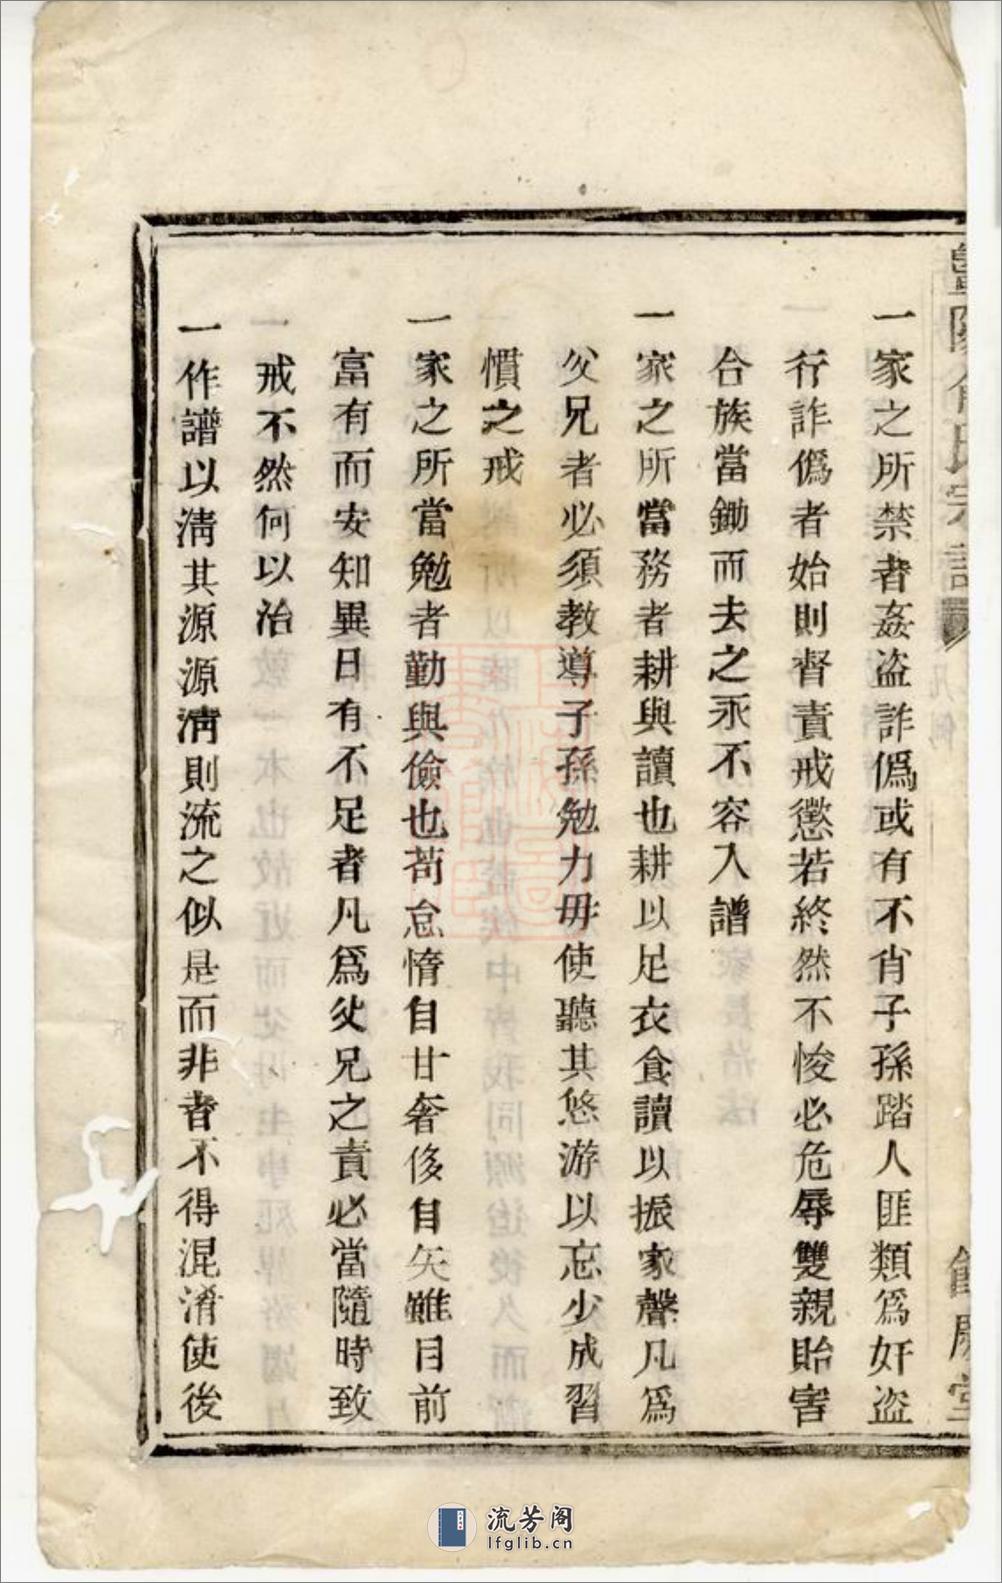 一家之所禁者姦盗詐僞或有不肖子孫踏人匪類爲奸盗
行詐僞者始則督責戒懲若終然不悛必危辱雙親貽害
合族當鋤而去之永不容入譜
一家之所當務者耕與讀也耕以足衣食讀以振家聲凡爲
父兄者必須教導子孫勉力毋使聽其悠游以忘少成習
慣之戒
一家之所當勉者勤與儉也苟怠惰自甘奢侈自矢雖目前
富有而安知異日有不足者凡爲父兄之責必當隨時致
戒不然何以治
一作譜以淸其源源淸則流之似是而非者不得混淆使後
流芳阁
lfglib.cn